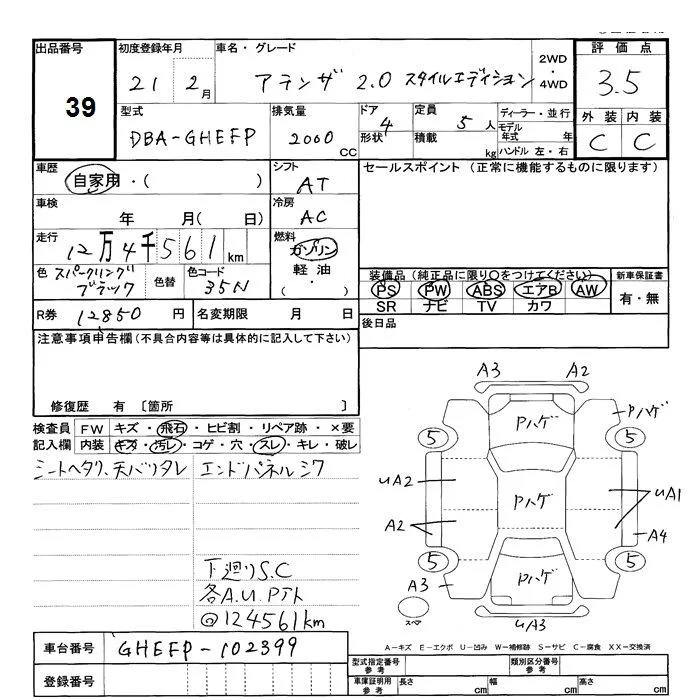 出品番号 39
初度登録年月 21 2月
車名・グレード アテンザ 2.0 スタイルエディション
2WD・4WD
評価点 3.5
外装 内装
C C
型式 DBA-GHEFP
排気量 2000 CC
ドア 4 形状
定員 5人 積載 kg
ディーラー・並行
モデル年式 年
ハンドル 左・右
車歴 自家用・( )
シフト AT
セールスポイント (正常に機能するものに限ります)
車検 年 月( 日)
冷房 AC
走行 12万4千561km
燃料 ガソリン 軽油 ( ・ )
色 スパークリングブラック 色替
色コード 35N
装備品(純正品に限り○をつけてください)
PS PW ABS エアB AW
SR ナビ TV カワ
新車保証書 有・無
R券 12850円
名変期限 月 日
後日品
注意事項申告欄(不具合内容等は具体的に記入して下さい)
修復歴 有 〔箇所 〕
検査員記入欄
FW キズ・飛石・ヒビ割・リペア跡・×要
内装 キズ・汚レ・コゲ・穴・スレ・キレ・破レ
シートヘタリ、天バリタレ エンドパネルシワ
下廻りS.C
各A.U.Pアト
@124561km
A3 A2
Pハゲ Pハゲ
5 5
UA2 Pハゲ UA1
A2 A4
5 5
A3 Pハゲ
スペア UA3
A-キズ E-エクボ U-凹み W-補修跡 S-サビ C-腐食 XX-交換済
車台番号 GHEFP-102399
登録番号
型式指定番号 参考
類別区分番号 参考
車庫証明用 参考 長さ cm 幅 cm 高さ cm